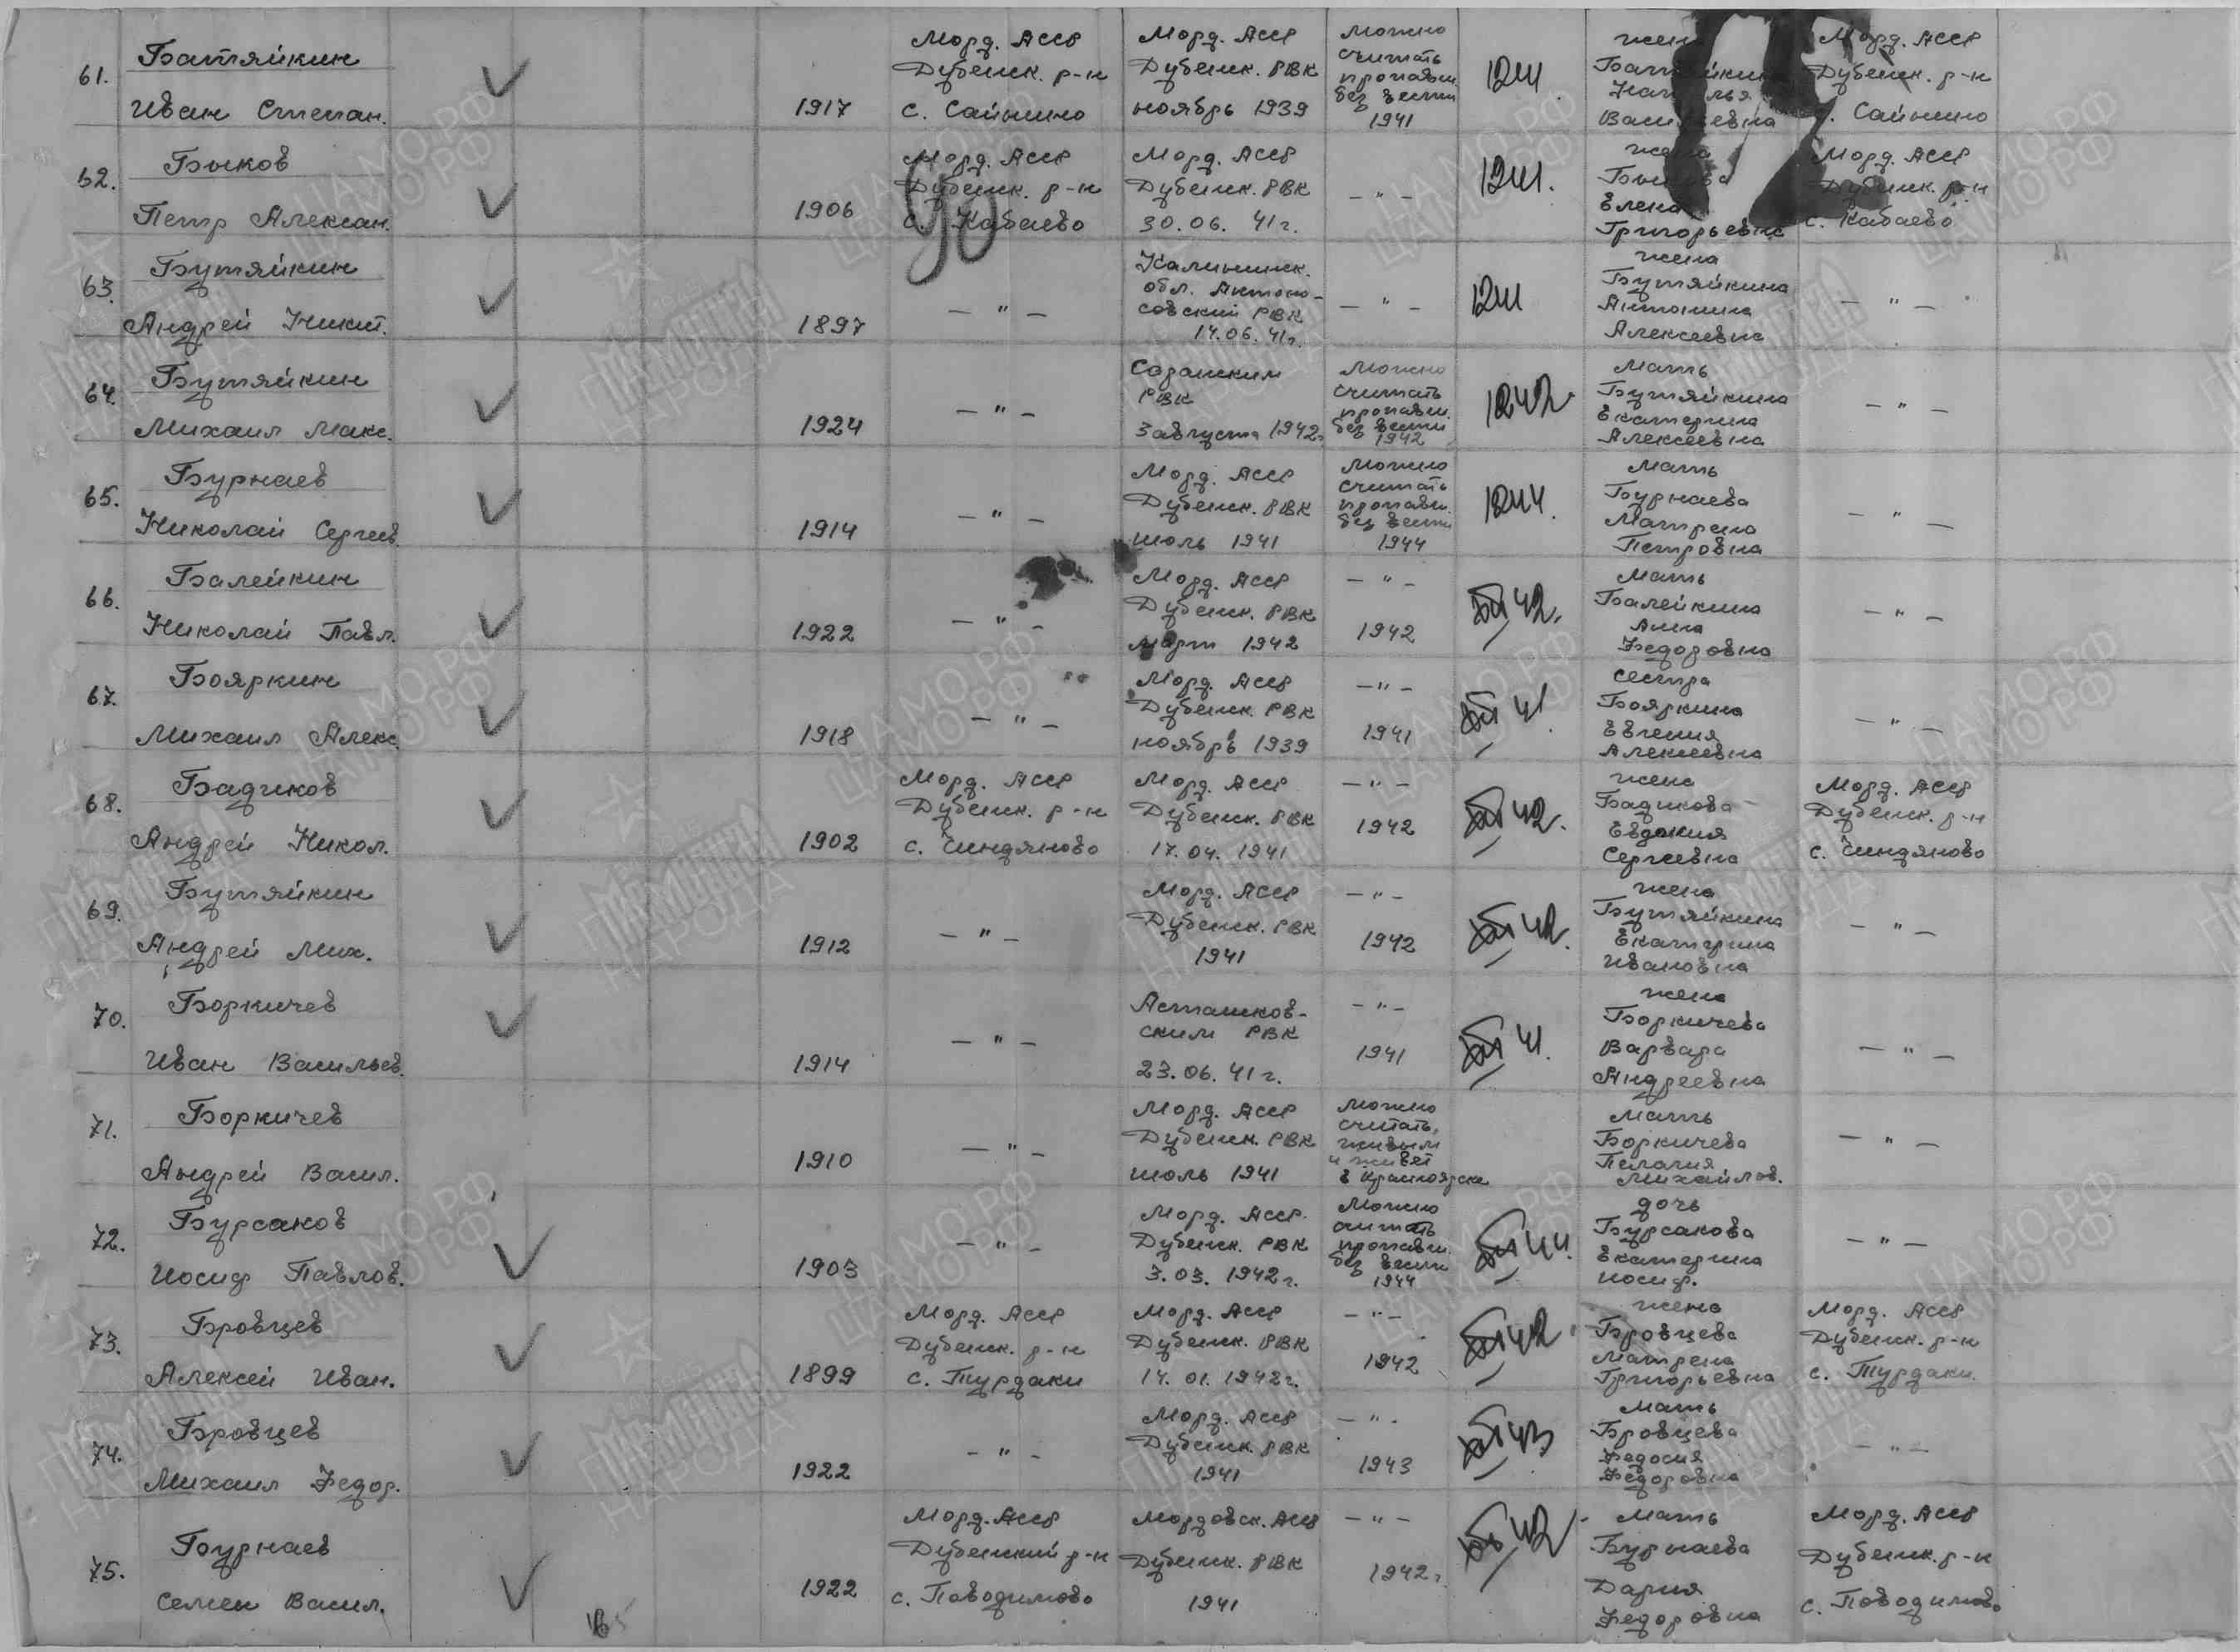 61.
Батяйкин
Иван Степан.
1917
Морд. АССР
Дубенск. р-н
с. Сайнино
Морд. АССР
Дубенск. РВК
ноябрь 1939
Можно
считать
пропавш.
без вести
1941
жена
Василевна
Морд. АССР
Дубенск. р-н
с. Сайнино
62.
Быков
Петр Алексан.
1906
Морд. АССР
Дубенск. р-н
с. Кабаево
Морд. АССР
Дубенск. РВК
30.06. 41г.
— " —
жена
Быкова
Елена
Григорьевна
Морд. АССР
Дубенск. р-н
с. Кабаево
63.
Бутяйкин
Андрей Никит.
1897
— " —
Калининск.
обл.
РВК
14.06.41г.
— " —
жена
Бутяйкина
Антонина
Алексеевна
— " —
64.
Бутяйкин
Михаил Макс.
1924
— " —
Саранским
РВК
3 августа 1942г
Можно
считать
пропавш.
без вести
1942
1242
Мать
Бутяйкина
Екатерина
Алексеевна
— " —
65.
Бурнаев
Николай Сергеев.
1914
— " —
Морд. АССР
Дубенск. РВК
июль 1941
Можно
считать
пропавш.
без вести
1944
1244.
Мать
Бурнаева
Матрена
Петровна
— " —
66.
Балейкин
Николай Павл.
1922
— " —
Морд. АССР
Дубенск. РВК
март 1942
— " —
1942
42.
Мать
Балейкина
Анна
Федоровна
— " —
67.
Бояркин
Михаил Алекс.
1918
— " —
Морд. АССР
Дубенск. РВК
ноябрь 1939
— " —
1941
41.
сестра
Бояркина
Евгения
Алексеевна
— " —
68.
Бадиков
Андрей Никол.
1902
Морд. АССР
Дубенск. р-н
с. Чиндяново
Морд. АССР
Дубенск. РВК
17.04. 1941
— " —
1942
42.
жена
Бадикова
Евдокия
Сергеевна
Морд. АССР
Дубенск. р-н
с. Чиндяново
69.
Бутяйкин
Андрей Мих.
1912
— " —
Морд. АССР
Дубенск. РВК
1941
— " —
1942
42.
жена
Бутяйкина
Екатерина
Ивановна
— " —
70.
Боркичев
Иван Васильев.
1914
— " —
Асташков-
ским РВК
23.06.41г.
— " —
1941
41.
жена
Боркичева
Варвара
Андреевна
— " —
71.
Боркичев
Андрей Васил.
1910
— " —
Морд. АССР
Дубенск. РВК
июль 1941
Можно
считать,
живым
и живет
в Красноярске
Мать
Боркичева
Пелагия
Михайлов.
— " —
72.
Бурсаков
Иосиф Павлов.
1903
— " —
Морд. АССР.
Дубенск. РВК
3.03. 1942г.
Можно
считать
пропавш.
без вести
1944
44.
дочь
Бурсакова
Екатерина
Иосиф.
— " —
73.
Бровцев
Алексей Иван.
1899
Морд. АССР
Дубенск. р-н
с. Турдаки
Морд. АССР
Дубенск. РВК
14. 01. 1942г.
— " —
1942
42
жена
Бровцева
Матрена
Григорьевна
Морд. АССР
Дубенск. р-н
с. Турдаки.
74.
Бровцев
Михаил Федор.
1922
— " —
Морд. АССР
Дубенск. РВК
1941
— " —
1943
43
Мать
Бровцева
Федосия
Федоровна
— " —
75.
Бурнаев
Семен Васил.
1922
Морд. АССР
Дубенский р-н
с. Поводимово
Мордовск. АССР
Дубенск. РВК
1941
— " —
1942г.
42
Мать
Бурнаева
Дария
Федоровна
Морд. АССР
Дубенск. р-н
с. Поводимово